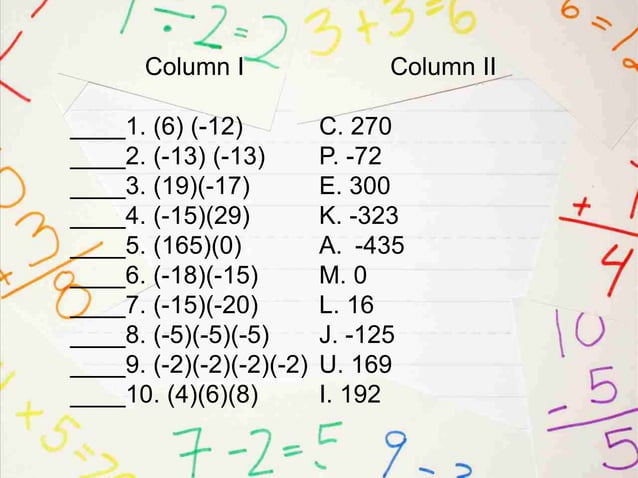 1÷2=2
3+3=6
6=
Column I Column II
____1. (6) (-12) C. 270
____2. (-13) (-13) P. -72
____3. (19)(-17) E. 300
____4. (-15)(29) K. -323
____5. (165)(0) A. -435
____6. (-18)(-15) M. 0
____7. (-15)(-20) L. 16
____8. (-5)(-5)(-5) J. -125
____9. (-2)(-2)(-2)(-2) U. 169
____10. (4)(6)(8) I. 192
+
4
10
- 5
5
+5=
7-2=5
9-